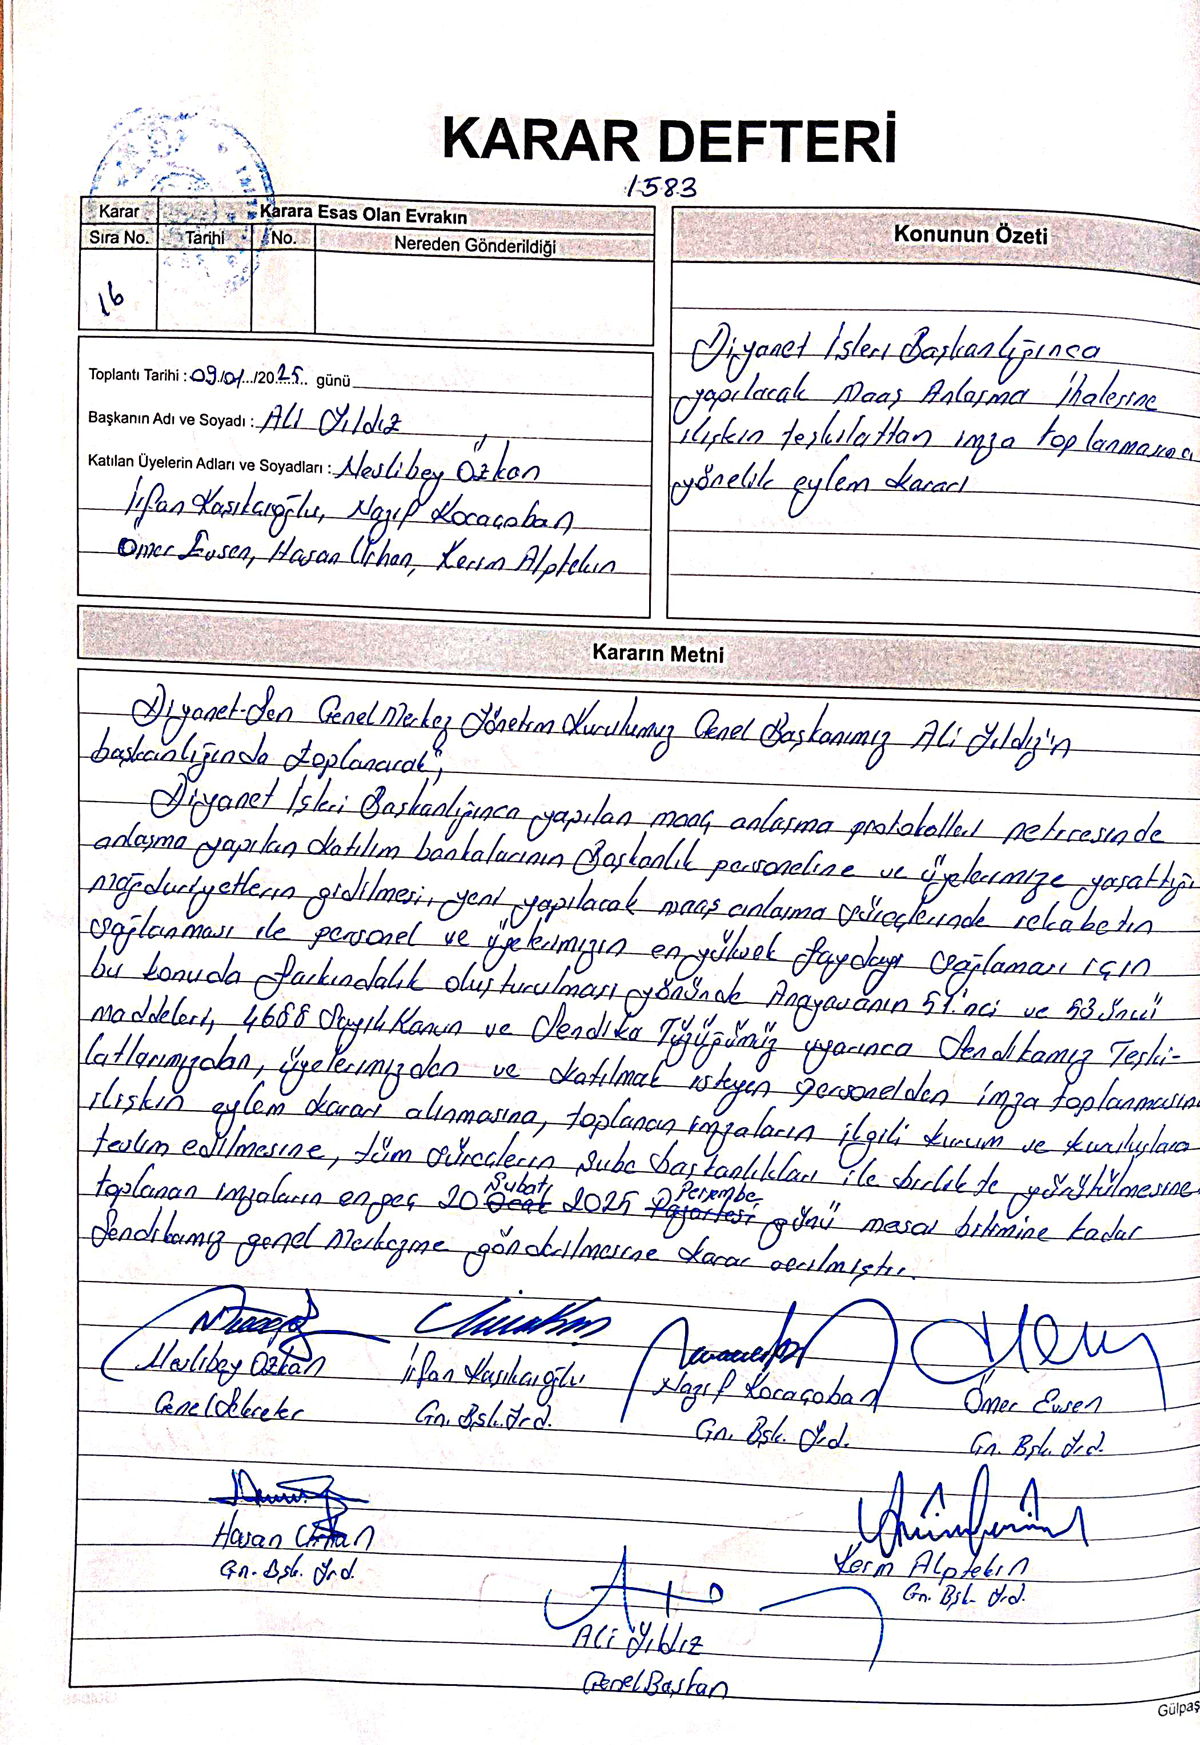 KARAR DEFTERİ
1583
Karar
Sıra No.
Karara Esas Olan Evrakın
Tarihi
No.
Nereden Gönderildiği
16
Konunun Özeti
Diyanet İşleri Başkanlığınca
yapılacak Maaş Anlaşma İhalesine
ilişkin teşkilattan imza toplanmasına
yönelik eylem kararı
Toplantı Tarihi : 09/01/2025 günü
Başkanın Adı ve Soyadı : Ali Yıldız
Katılan Üyelerin Adları ve Soyadları : Meslibey Özkan
İrfan Kaşıkcıoğlu, Nazif Kocaçoban
Ömer Evsen, Hasan Urhan, Kerim Alptekin
Kararın Metni
Diyanet-Sen Genel Merkez Yönetim Kurulumuz Genel Başkanımız Ali Yıldız'ın
başkanlığında toplanarak;
Diyanet İşleri Başkanlığınca yapılan maaş anlaşma protokolleri neticesinde
anlaşma yapılan katılım bankalarının Başkanlık personeline ve üyelerimize yaşattığı
mağduriyetlerin gidilmesi, yeni yapılacak maaş anlaşma süreçlerinde rekabetin
sağlanması ile personel ve üyelerimizin en yüksek faydayı sağlaması için
bu konuda farkındalık oluşturulması yönünde Anayasanın 51.'nci ve 53.üncü
maddeleri, 4688 Sayılı Kanun ve Sendika Tüzüğümüz uyarınca Sendikamız Teşki-
latlarımızdan, üyelerimizden ve katılmak isteyen personelden imza toplanmasına
ilişkin eylem kararı alınmasına, toplanan imzaların ilgili kurum ve kuruluşlara
teslim edilmesine, tüm süreçlerin şube başkanlıkları ile birlikte yürütülmesine
toplanan imzaların en geç 20 Ocak Şubat 2025 Pazartesi Perşembe günü mesai bitimine kadar
Sendikamız genel Merkezine gönderilmesine karar verilmiştir.
Meslibey Özkan
Genel Sekreter
İrfan Kaşıkcıoğlu
Gn. Bşk. Yrd.
Nazif Kocaçoban
Gn. Bşk. Yrd.
Ömer Evsen
Gn. Bşk. Yrd.
Hasan Urhan
Gn. Bşk. Yrd.
Kerim Alptekin
Gn. Bşk. Yrd.
Ali Yıldız
Genel Başkan
Gülpaş